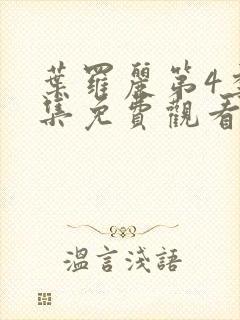 葉羅麗第4季
集免費觀看
溫言淺語